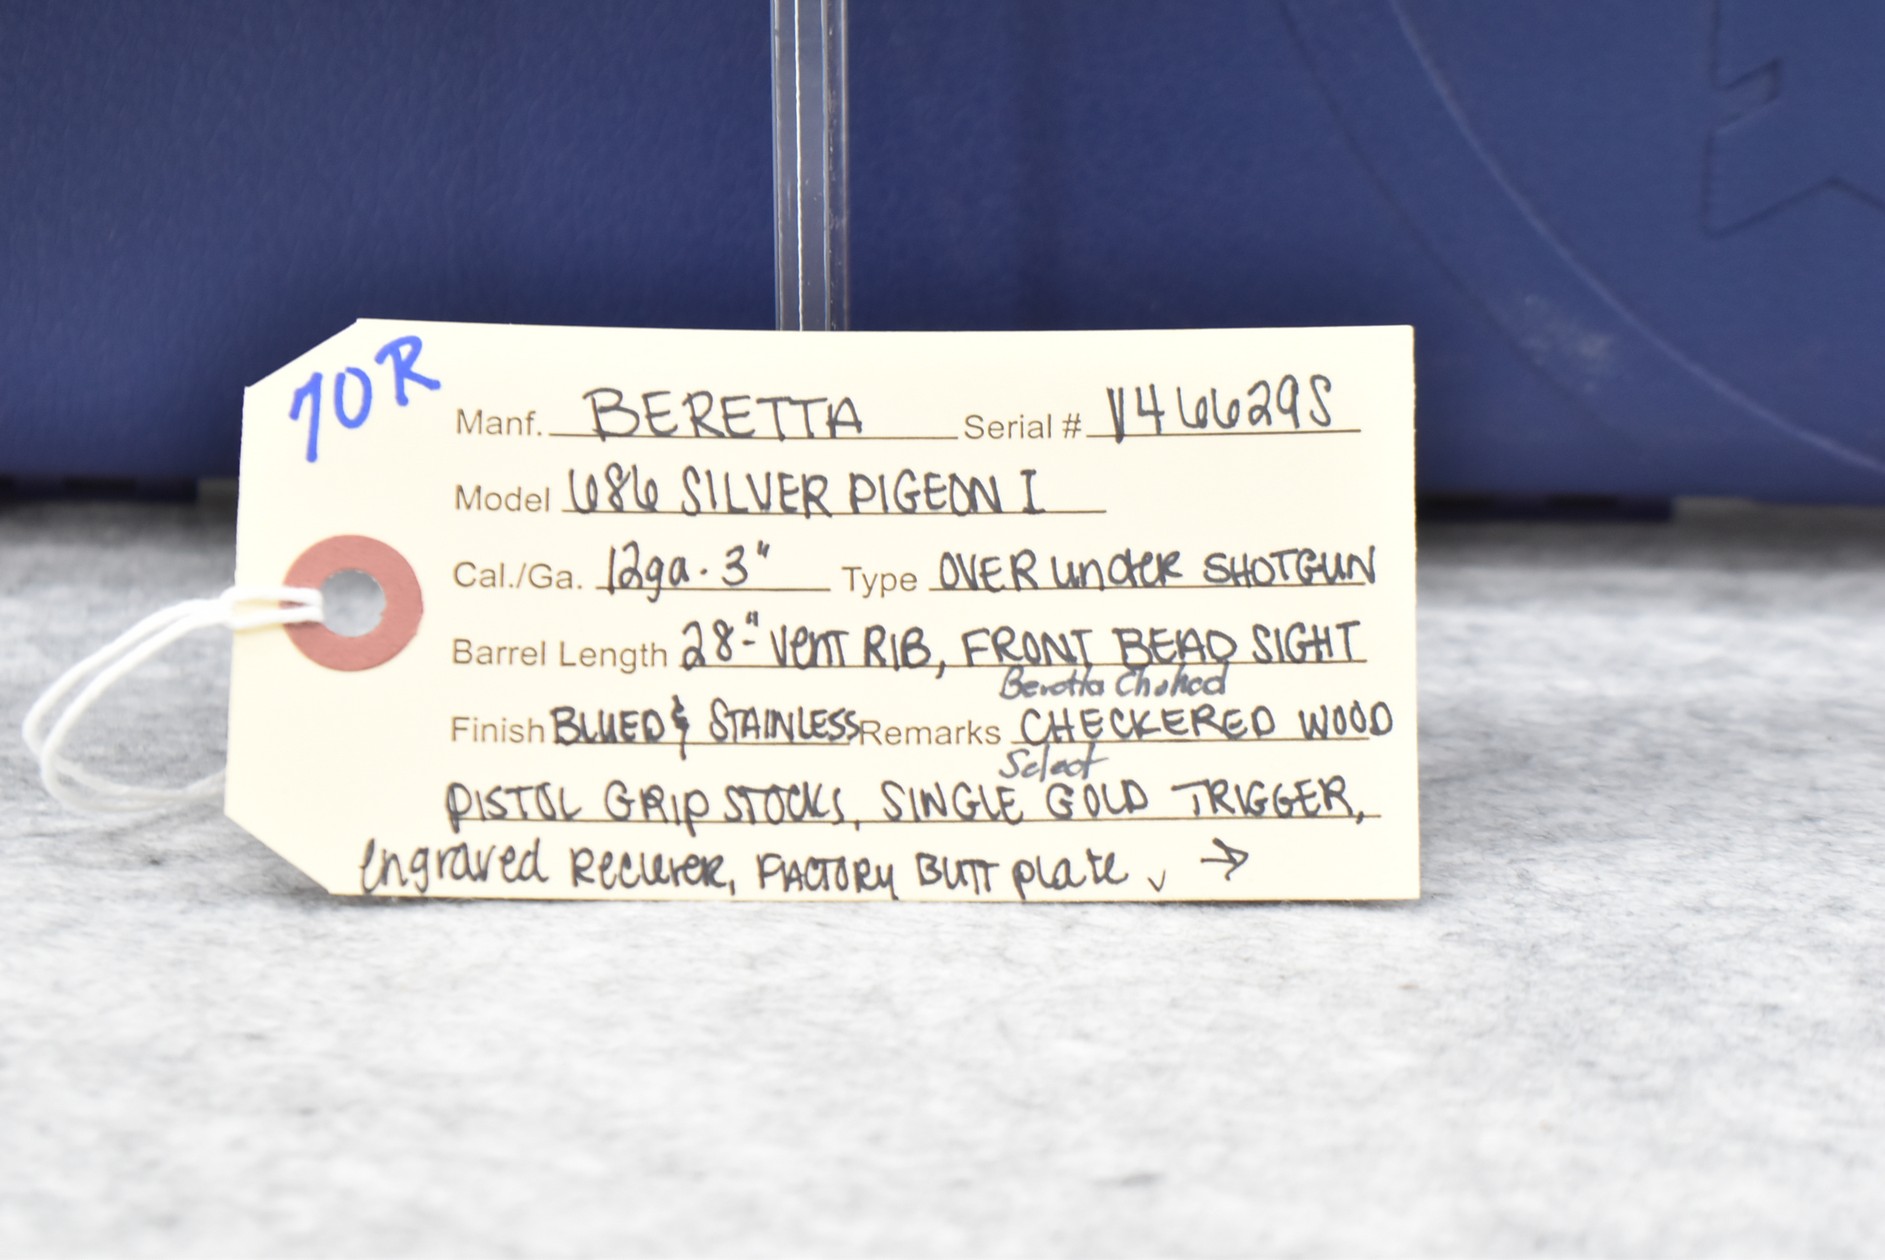 70R
Manf. BERETTA Serial # V46629S
Model 686 SILVER PIGEON I
Cal./Ga. 12ga. 3" Type OVER under SHOTGUN
Barrel Length 28-" Vent RIB, FRONT BEAD SIGHT
Beretta Choked
Finish BLUED & STAINLESS Remarks CHECKERED WOOD
Select
PISTOL GRIP STOCKS, SINGLE GOLD TRIGGER,
Engraved Reciever, FACTORY BUTT plate, →